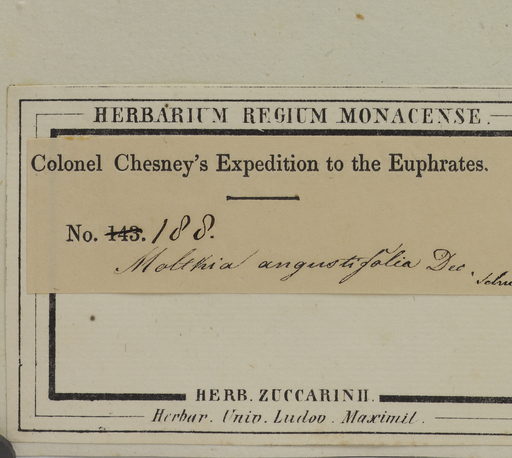 HERBARIUM REGIUM MONACENSE.
Colonel Chesney's Expedition to the Euphrates.
No. 143. 188.
Moltkia angustifolia Dec.
HERB. ZUCCARINII.
Herbar. Univ. Ludov. Maximil.